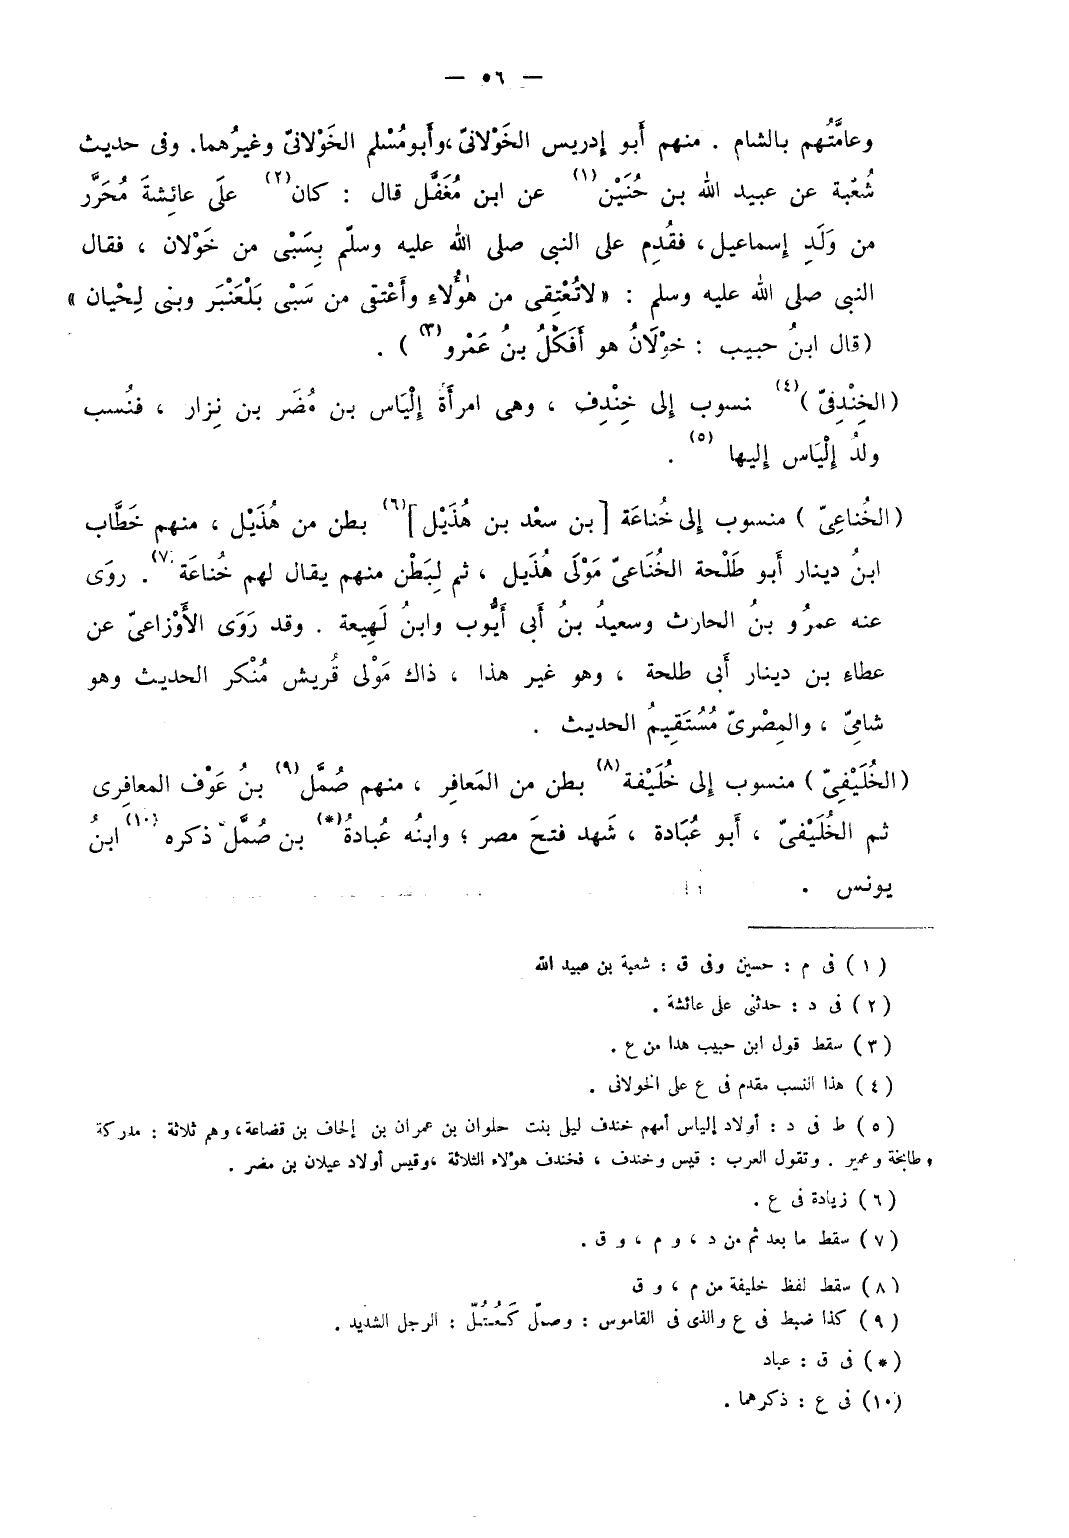 — ٥٦ —
وعامَّتُهم بالشام . منهم أَبو إدريس الخَوْلانىّ ،وأَبومُسْلم الخَوْلانىّ وغيرُهما. وفى حديث
شُعْبة عن عبيد الله بن حُنَيْن(١) عن ابن مُغَفَّل قال : كان(٢) علَى عائِشةَ مُحَرَّر
من وَلَدِ إسماعيل، فقُدِم على النبى صلى الله عليه وسلّم بِسَبْى من خَوْلان ، فقال
النبى صلى الله عليه وسلم : « لاتُعْتِقى من هٰؤُلاءِ وأَعْتقى من سَبْى بَلْعَنْبَر وبنى لِحْيان »
(قال ابنُ حبيب : خوْلَانُ هو أَفَكْلُ بنُ عَمْرو(٣) ) .
(الخِنْدِفىّ )(٤) نسوب إلى خِنْدِف ، وهى امرأَة إلْيَاس بن مُضَر بن نِزار ، فنُسب
ولدُ إلْيَاس إليها (٥) .
(الخُناعِىّ ) منسوب إلى خُناعَة [ بن سعْد بن هُذَيْل ](٦) بطن من هُذَيْل ، منهم خَطَّاب
ابنُ دينار أَبو طَلْحة الخُنَاعىّ مَوْلَى هُذَيل ، ثم لِبَطْن منهم يقال لهم خُناعَة (٧). روَى
عنه عمرُو بنُ الحارث وسعيدُ بنُ أَبى أَيُّوب وابنُ لَهِيعة . وقد رَوَى الأَوْزاعىّ عن
عطاءِ بن دينار أَبى طلحة ، وهو غير هذا ، ذاك مَوْلى قُريش مُنْكر الحديث وهو
شامىّ ، والمِصْرىّ مُسْتَقِيمُ الحديث .
(الخُلَيْفِىّ ) منسوب إلى خُلَيْفة(٨) بطن من المَعافِر ، منهم صُمَّل(٩) بنُ عَوْف المعافِرى
ثم الخُلَيْفىّ ، أَبو عُبَادة ، شَهد فتحَ مصر ؛ وابنُه عُبادةُ(*) بن صُمَّل ذكره (١٠) ابنُ
يونس .
(١) فى م : حسين وفى ق : شعبة بن عبيد الله
(٢) فى د : حدثنى على عائشة .
(٣) سقط قول ابن حبيب هدا من ع .
(٤) هذا النسب مقدم فى ع على الخولانى .
(٥) ط فى د : أولاد إلياس أمهم خندف ليلى بنت حلوان بن عمران بن إلحاف بن قضاعة، وهم ثلاثة : مدركة
، طابخة وعمير . وتقول العرب : قيس وخندف ، فخندف هؤلاء الثلاثة ،وقيس أولاد عيلان بن مضر .
(٦) زيادة فى ع .
(٧) سقط ما بعد ثم من د ، و م ، و ق .
(٨) سقط لفظ خليفة من م ، و ق
(٩) كذا ضبط فى ع والذى فى القاموس : وصملّ كَعُتُلّ : الرجل الشديد .
(*) فى ق : عباد
(١٠) فى ع : ذكرهما .